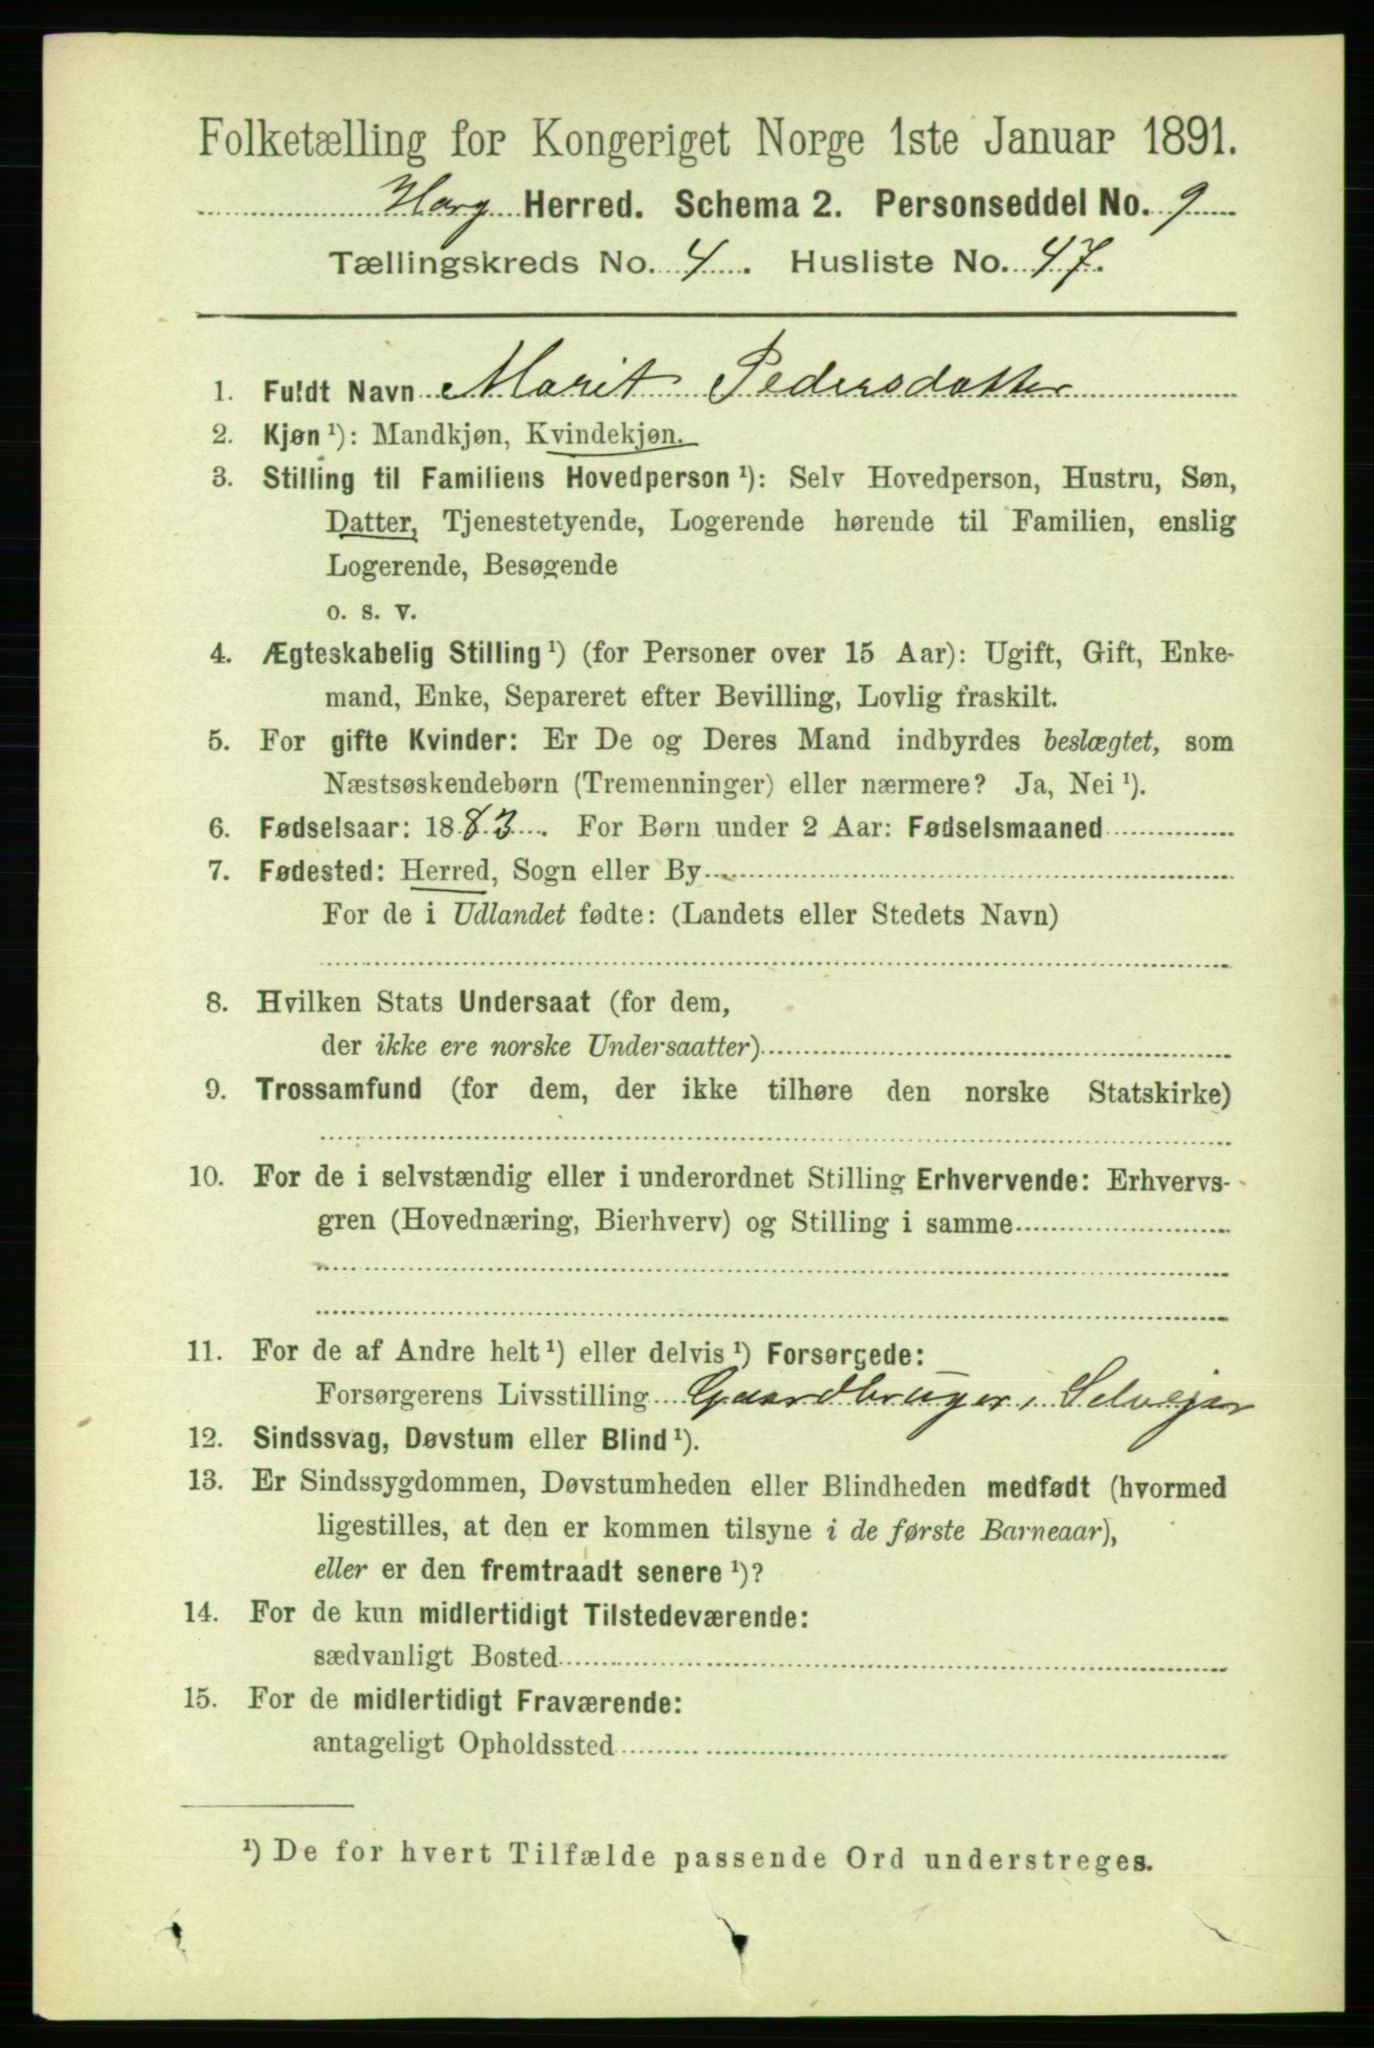 Folketælling for Kongeriget Norge 1ste Januar 1891.
Horg Herred. Schema 2. Personseddel No. 9
Tællingskreds No. 4. Husliste No. 47.
1. Fuldt Navn Marit Pedersdatter
2. Kjøn ¹): Mandkjøn, Kvindekjøn.
3. Stilling til Familiens Hovedperson ¹): Selv Hovedperson, Hustru, Søn,
Datter, Tjenestetyende, Logerende hørende til Familien, enslig
Logerende, Besøgende
o. s. v.
4. Ægteskabelig Stilling ¹) (for Personer over 15 Aar): Ugift, Gift, Enke-
mand, Enke, Separeret efter Bevilling, Lovlig fraskilt.
5. For gifte Kvinder: Er De og Deres Mand indbyrdes beslægtet, som
Næstsøskendebørn (Tremenninger) eller nærmere? Ja, Nei ¹).
6. Fødselsaar: 1883. For Børn under 2 Aar: Fødselsmaaned
7. Fødested: Herred, Sogn eller By
For de i Udlandet fødte: (Landets eller Stedets Navn)
8. Hvilken Stats Undersaat (for dem,
der ikke ere norske Undersaatter)
9. Trossamfund (for dem, der ikke tilhøre den norske Statskirke)
10. For de i selvstændig eller i underordnet Stilling Erhvervende: Erhvervs-
gren (Hovednæring, Bierhverv) og Stilling i samme
11. For de af Andre helt ¹) eller delvis ¹) Forsørgede:
Forsørgerens Livsstilling Gaardbruger, Selvejer
12. Sindssvag, Døvstum eller Blind ¹).
13. Er Sindssygdommen, Døvstumheden eller Blindheden medfødt (hvormed
ligestilles, at den er kommen tilsyne i de første Barneaar),
eller er den fremtraadt senere ¹)?
14. For de kun midlertidigt Tilstedeværende:
sædvanligt Bosted
15. For de midlertidigt Fraværende:
antageligt Opholdssted
¹) De for hvert Tilfælde passende Ord understreges.